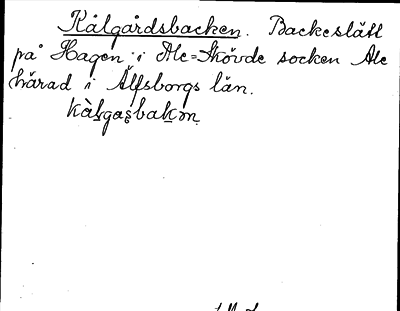 Kålgårdsbacken. Backeslått
på Hagen i Ale=Skövde socken Ale
härad i Älfsborgs län.